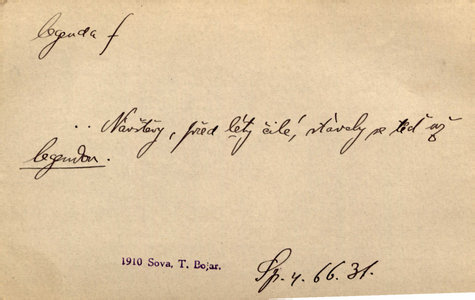 legenda f
.. Návštěvy, před léty čilé, stávaly se teď už
legendou.
1910 Sova, T. Bojar.
Sp. 4. 66. 31.